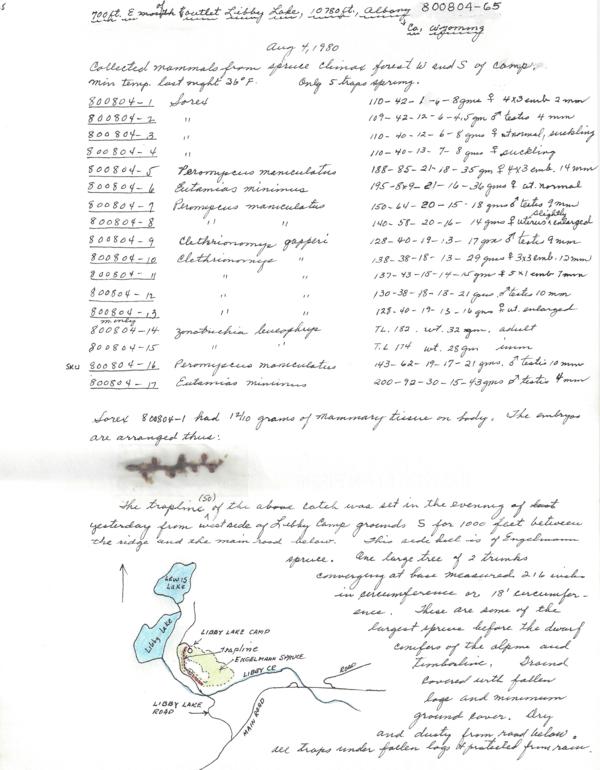 700 ft. E of mouth outlet Libby Lake, 10780 ft., Albany 800804-65
Co., Wyoming
Aug 4, 1980
Collected mammals from spruce climax forest W and S of camp.
Min temp. last night 36°F. Only 5 traps sprung.
800804-1 Sorex 110-42-1 -6-8gms ♀ 4x3 emb 2 mm
800804-2 " 109-42-12-6-4.5 gm ♂ testis 4 mm
800804-3 " 110-40-12-6-8 gms ♀ ut normal, suckling
800804-4 " 110-40-13-7-8 gms ♀ suckling
800804-5 Peromyscus maniculatus 188-85-21-18-35 gm ♀ 4x3 emb. 14 mm
800804-6 Eutamias minimus 195-89-21-16-36 gms ♀ ut. normal
800804-7 Peromyscus maniculatus 150-64-20-15-18 gms ♂ testis 9 mm
800804-8 " " 140-58-20-16-14 gms ♀ uterus slightly enlarged
800804-9 Clethrionomys gapperi 128-40-19-13-17 gm ♂ testis 9 mm
800804-10 Clethrionomys " 138-38-18-13-29 gms ♀ 3x3 emb. 12 mm
800804-11 " " 137-43-15-14-25 gms ♀ 5x1 emb 7mm
800804-12 " " 130-38-18-13-21 gms. ♂ testis 10 mm
800804-13 " " 128-40-19-13-16 gms ♀ ut. enlarged
800804-14 Zonotrichia leucophrys T.L. 182. wt. 32 gm. adult
800804-15 " " T.L 174 wt. 28 gm imm
SKU 800804-16 Peromyscus maniculatus 143-62-19-17-21 gms. ♂ testis 10 mm
800804-17 Eutamias minimus 200-92-30-15-43 gms ♂ testis 4 mm
Sorex 800804-1 had 1 2/10 grams of mammary tissue on body. The embryos
are arranged thus:
The trapline (50) of the above catch was set in the evening of last
yesterday from west side of Libby Camp grounds S for 1000 feet between
the ridge and the main road below. This side hill is of Engelmann
spruce. One large tree of 2 trunks
converging at base measured 216 inch
in circumference or 18' circumfer-
ence. These are some of the
largest spruce before the dwarf
conifers of the alpine and
timberline. Ground
covered with fallen
logs and minimum
ground cover. Dry
and dusty from road below.
All traps under fallen logs & protected from rain.
LEWIS
LAKE
Libby Lake
LIBBY LAKE CAMP
Trapline
ENGELMANN SPRUCE
LIBBY CR
ROAD
LIBBY LAKE
ROAD
MAIN ROAD